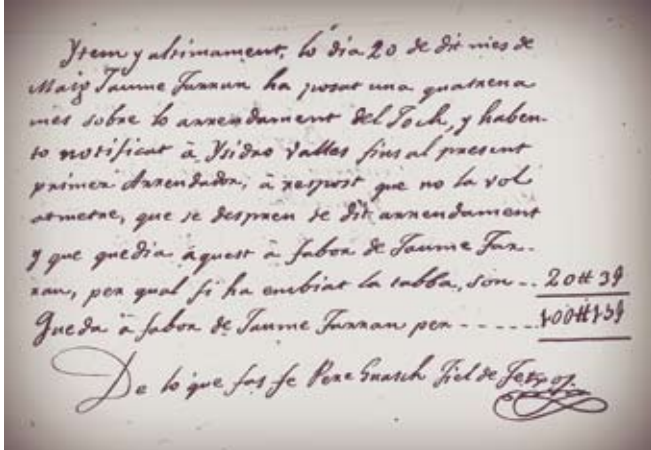 Ytem y altimament, lo dia 20 de dit mes de
Maig Jaume Farran ha posat una quatrena
mes sobre lo arrendament del Joch, y haben-
to notificat à Ysidro Valles fins al present
primer Arrendador, à respost que no la vol
atmetre, que se despren de dit arrendament
y que quedia aquest à fabor de Jaume Far-
ran, per qual fi ha embiat la tabba, son - - 20 3
Queda à fabor de Jaume Farran per - - - - - 100 13
De lo que fas fe Pere Guasch Fiel de Fetxos